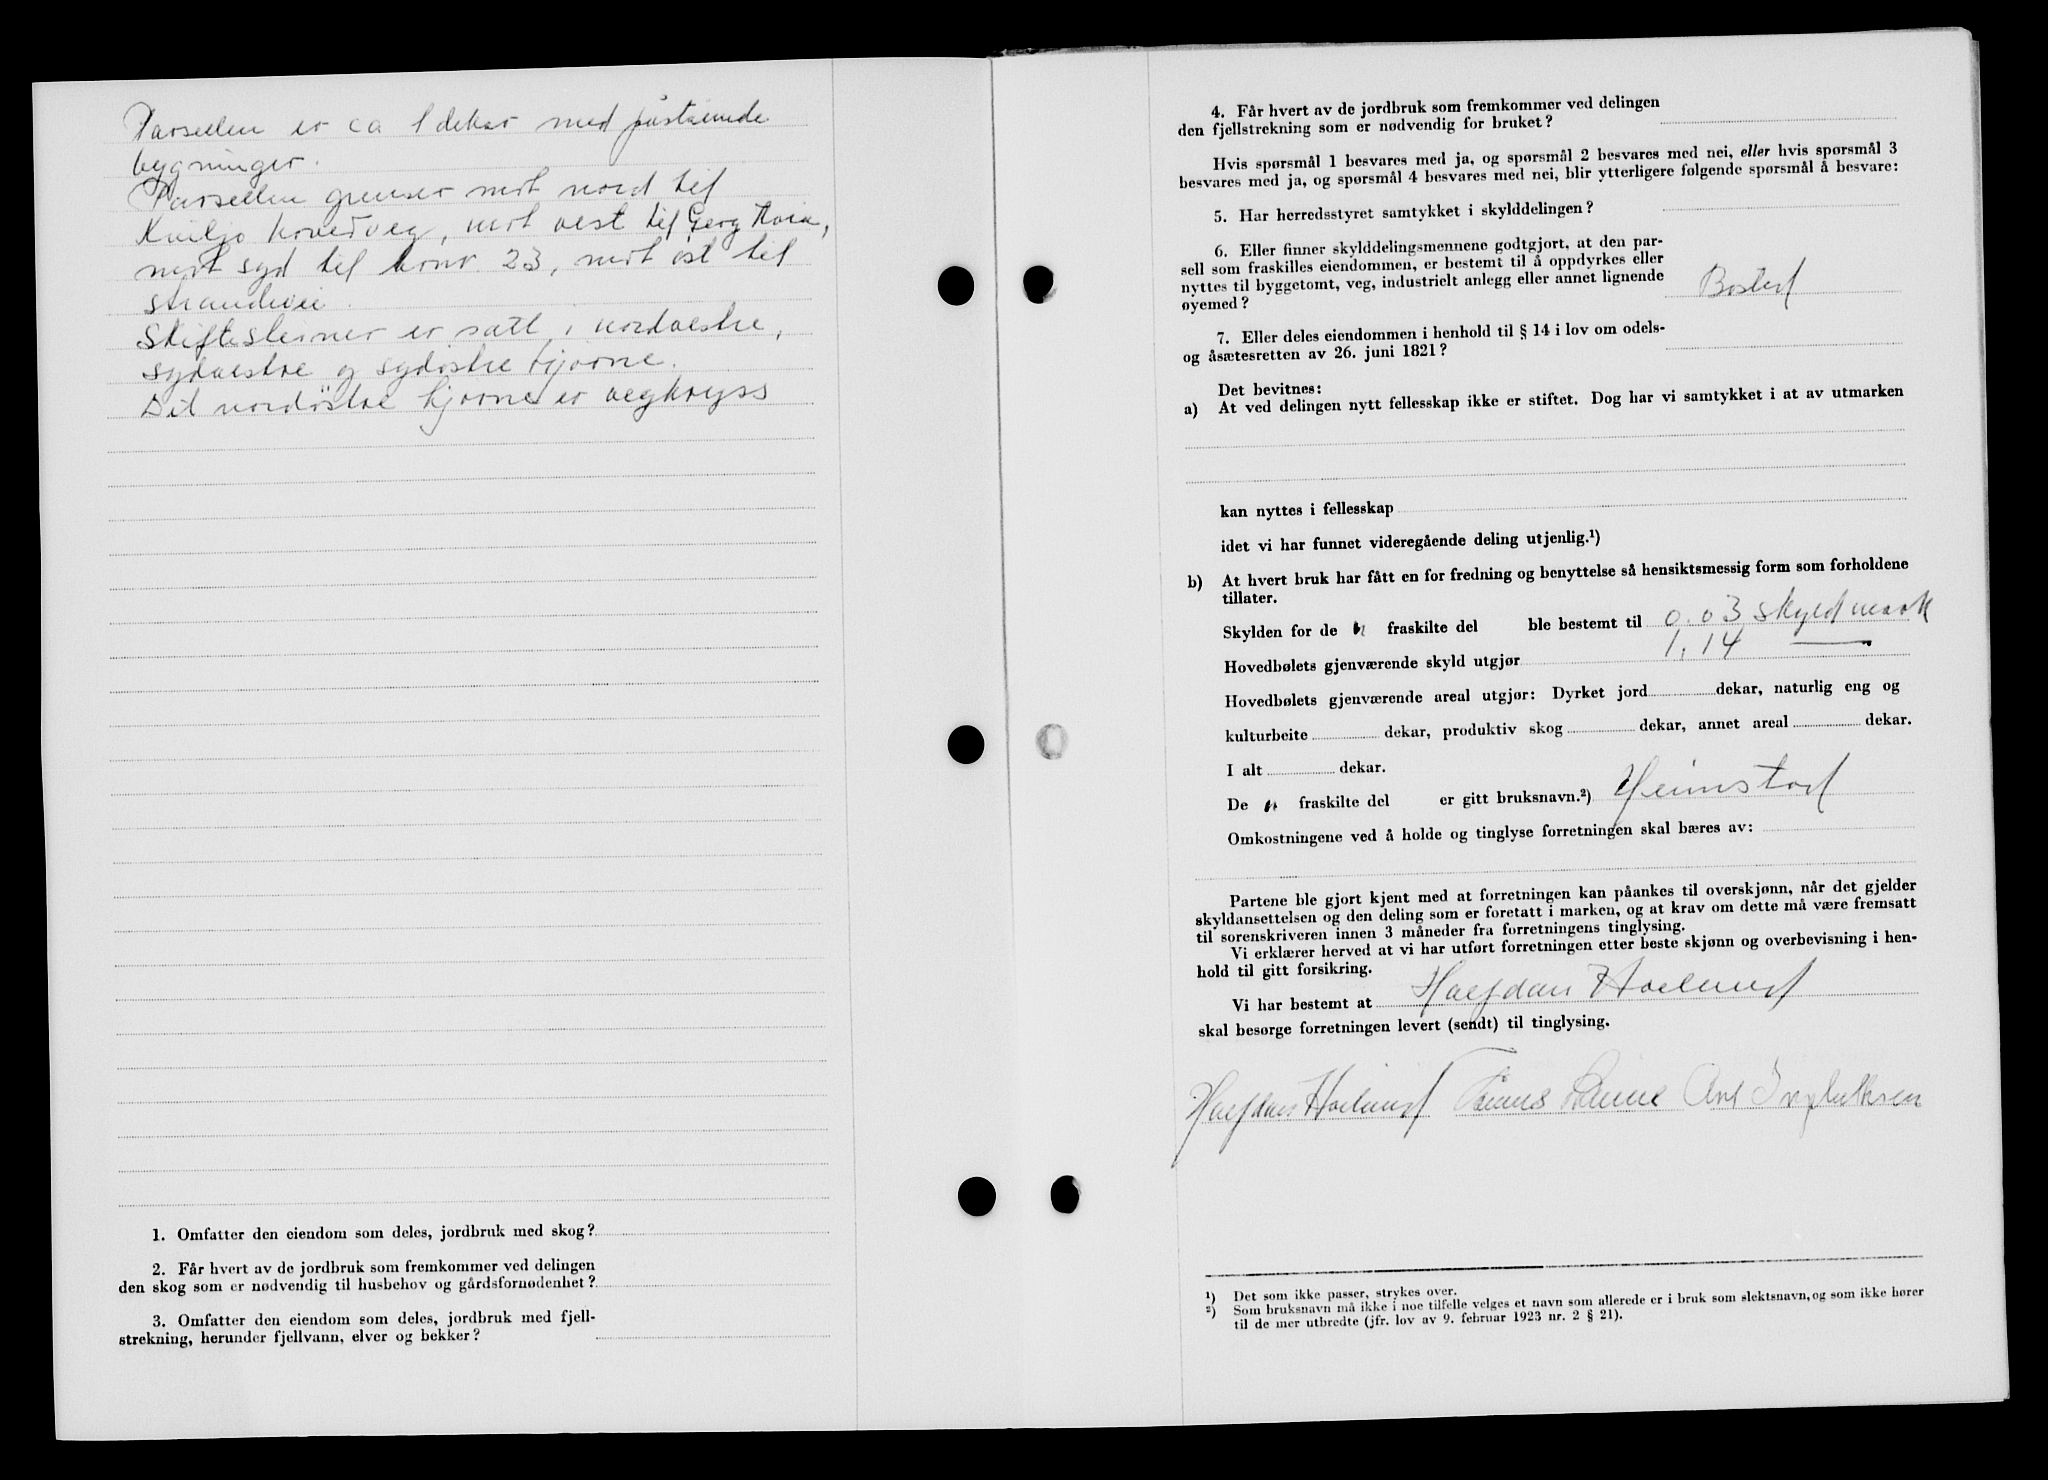 Parsellen er ca 1 dekar med påstående
bygninger.
Parsellen grenser mot nord til
hovedveg, mot vest til Georg
mot syd til brnr. 23, mot øst til
Strandveie.
Skiftesteiner er satt i nordvestre,
sydvestre og sydøstre hjørne.
Det nordöstre hjørne er vegkryss
1. Omfatter den eiendom som deles, jordbruk med skog?
2. Får hvert av de jordbruk som fremkommer ved delingen
den skog som er nødvendig til husbehov og gårdsfornødenhet?
3. Omfatter den eiendom som deles, jordbruk med fjell-
strekning, herunder fjellvann, elver og bekker?
4. Får hvert av de jordbruk som fremkommer ved delingen
den fjellstrekning som er nødvendig for bruket?
Hvis spørsmål 1 besvares med ja, og spørsmål 2 besvares med nei, eller hvis spørsmål 3
besvares med ja, og spørsmål 4 besvares med nei, blir ytterligere følgende spørsmål å besvare:
5. Har herredsstyret samtykket i skylddelingen?
6. Eller finner skylddelingsmennene godtgjort, at den par-
sell som fraskilles eiendommen, er bestemt til å oppdyrkes eller
nyttes til byggetomt, veg, industrielt anlegg eller annet lignende
øyemed? Bosted
7. Eller deles eiendommen i henhold til § 14 i lov om odels-
og åsætesretten av 26. juni 1821?
Det bevitnes:
a) At ved delingen nytt fellesskap ikke er stiftet. Dog har vi samtykket i at av utmarken
kan nyttes i fellesskap
idet vi har funnet videregående deling utjenlig.¹)
b) At hvert bruk har fått en for fredning og benyttelse så hensiktsmessig form som forholdene
tillater.
Skylden for de n fraskilte del ble bestemt til 0.03 skyldmark
Hovedbølets gjenværende skyld utgjør 1,14 —
Hovedbølets gjenværende areal utgjør: Dyrket jord dekar, naturlig eng og
kulturbeite dekar, produktiv skog dekar, annet areal dekar.
I alt dekar.
De n fraskilte del er gitt bruksnavn.²) Heimstad
Omkostningene ved å holde og tinglyse forretningen skal bæres av:
Partene ble gjort kjent med at forretningen kan påankes til overskjønn, når det gjelder
skyldansettelsen og den deling som er foretatt i marken, og at krav om dette må være fremsatt
til sorenskriveren innen 3 måneder fra forretningens tinglysing.
Vi erklærer herved at vi har utført forretningen etter beste skjønn og overbevisning i hen-
hold til gitt forsikring.
Vi har bestemt at Halfdan Hoelund
skal besørge forretningen levert (sendt) til tinglysing.
Halfdan Hoelund
¹) Det som ikke passer, strykes over.
²) Som bruksnavn må ikke i noe tilfelle velges et navn som allerede er i bruk som slektsnavn, og som ikke hører
til de mer utbredte (jfr. lov av 9. februar 1923 nr. 2 § 21).